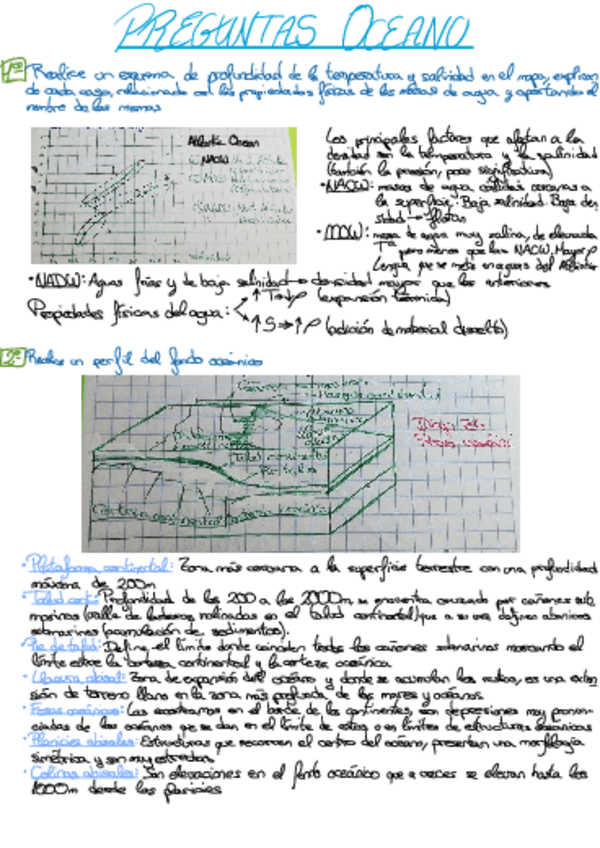 PREGUNTAS OCEANO
1ª Realice un esquema de profundidad de la temperatura y salinidad en el mapa, explican
do cada caso, relacionando con las propiedades físicas de las masas de agua y aportando el
nombre de las mismas
Atlantic Ocean
NACW
Los principales factores que afectan a la
densidad son la temperatura y la salinidad
(también la presión, poco significativa)
• NACW: masas de agua cálidas cercanas a
la superficie. Baja salinidad. Baja den
sidad → flotas
• MOW: masa de agua muy salina, de elevada
Tª pero menos que las NACW. Mayor ρ
Lengua que se mete en aguas del Atlántico
• NADW: Aguas frías y de baja salinidad → densidad mayor que las anteriores
Propiedades físicas del agua: ↑T → ↓ρ (expansión térmica)
↑S ⇒ ↑ρ (adición de material disuelto)
2ª Realice un perfil del fondo oceánico
Margen continental
Talud continental
Corteza continental
• Plataforma continental: Zona más cercana a la superficie terrestre con una profundidad
máxima de 200m
• Talud cont.: Profundidad de los 200 a los 2000m, se encuentra cruzado por cañones sub
marinos (valle de laderas inclinadas en el talud continental) que a su vez definen abanicos
submarinos (acumulación de sedimentos).
• Pie de talud: Define el límite donde coinciden todos los cañones submarinos marcando el
límite entre la corteza continental y la corteza oceánica
• Llanura abisal: Zona de expansión del océano y donde se acumulan los restos, es una exten
sión de terreno llano en la zona más profunda de los mares y océanos.
• Fosas oceánicas: Las encontramos en el borde de los continentes, son depresiones muy pronun
ciadas de los océanos que se dan en el límite de estos o en límites de estructuras oceánicas
• Planicies abisales: Estructuras que recorren el centro del océano, presentan una morfología
simétrica y son muy extendidas
• Colinas abisales: Son elevaciones en el fondo oceánico que a veces se elevan hasta los
1000m desde las planicies